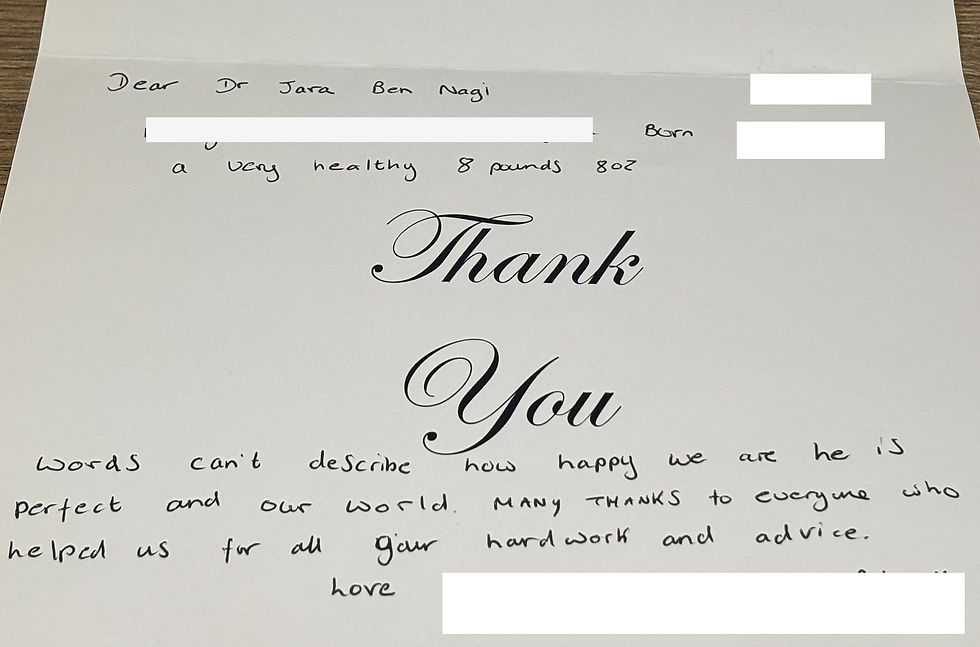 Dear Dr Jara Ben Nagi
Born
a very healthy 8 pounds 8oz
Thank
You
Words can't describe how happy we are he is
perfect and our world. MANY THANKS to everyone who
helped us for all your hardwork and advice.
Love